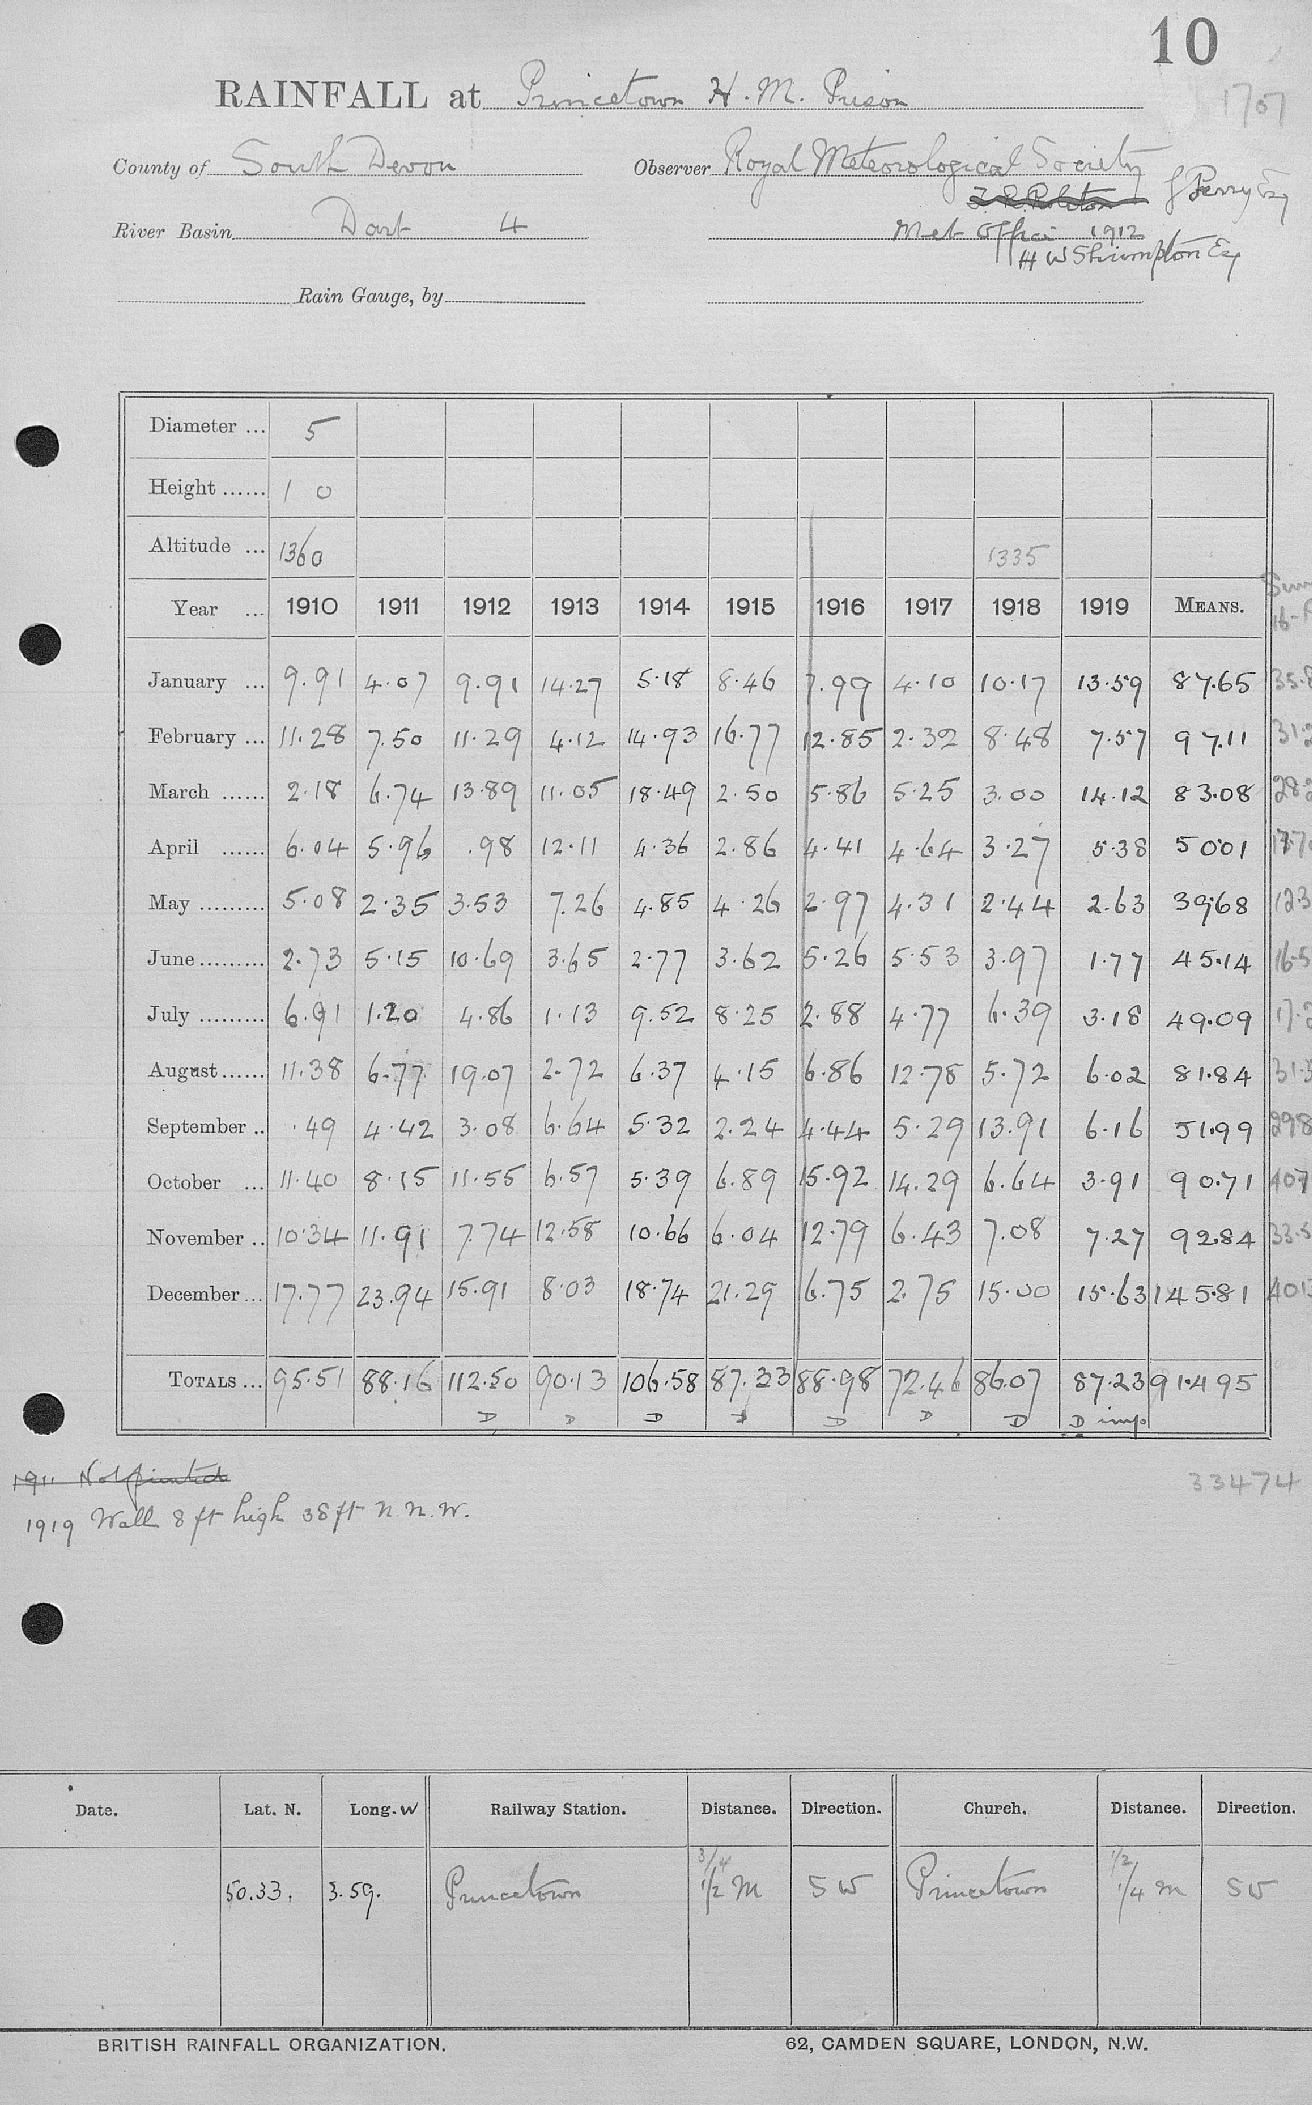 10
RAINFALL at Princetown H. M. Prison
1707
County of South Devon Observer Royal Meteorological Society
J Perry Esq
River Basin Dart 4 Met Office 1912
H W Shrimpton Esq
Rain Gauge, by
Diameter ... 5
Height ...... 1 0
Altitude ... 1360 1335
Year ... 1910 1911 1912 1913 1914 1915 1916 1917 1918 1919 MEANS.
January ... 9.91 4.07 9.91 14.27 5.18 8.46 7.99 4.10 10.17 13.59 87.65
February ... 11.28 7.50 11.29 4.12 14.93 16.77 12.85 2.32 8.48 7.57 97.11
March ...... 2.18 6.74 13.89 11.05 18.49 2.50 5.86 5.25 3.00 14.12 83.08
April ...... 6.04 5.96 .98 12.11 4.36 2.86 4.41 4.64 3.27 5.38 50.01
May ......... 5.08 2.35 3.53 7.26 4.85 4.26 2.97 4.31 2.44 2.63 39.68
June ......... 2.73 5.15 10.69 3.65 2.77 3.62 5.26 5.53 3.97 1.77 45.14
July ......... 6.91 1.20 4.86 1.13 9.52 8.25 2.88 4.77 6.39 3.18 49.09
August ...... 11.38 6.77 19.07 2.72 6.37 4.15 6.86 12.78 5.72 6.02 81.84
September .. .49 4.42 3.08 6.64 5.32 2.24 4.44 5.29 13.91 6.16 51.99
October ... 11.40 8.15 11.55 6.57 5.39 6.89 15.92 14.29 6.64 3.91 90.71
November .. 10.34 11.91 7.74 12.58 10.66 6.04 12.79 6.43 7.08 7.27 92.84
December ... 17.77 23.94 15.91 8.03 18.74 21.29 6.75 2.75 15.00 15.63 145.81
TOTALS ... 95.51 88.16 112.50 90.13 106.58 87.33 88.98 72.46 86.07 87.23 914.95
D D D D D D D D imp
1911 Not printed
33474
1919 Wall 8 ft high 38 ft N.N.W.
Date. Lat. N. Long. W Railway Station. Distance. Direction. Church. Distance. Direction.
3/4 1/2
50.33. 3.59. Princetown 1/2 M SW Princetown 1/4 m SW
BRITISH RAINFALL ORGANIZATION. 62, CAMDEN SQUARE, LONDON, N.W.